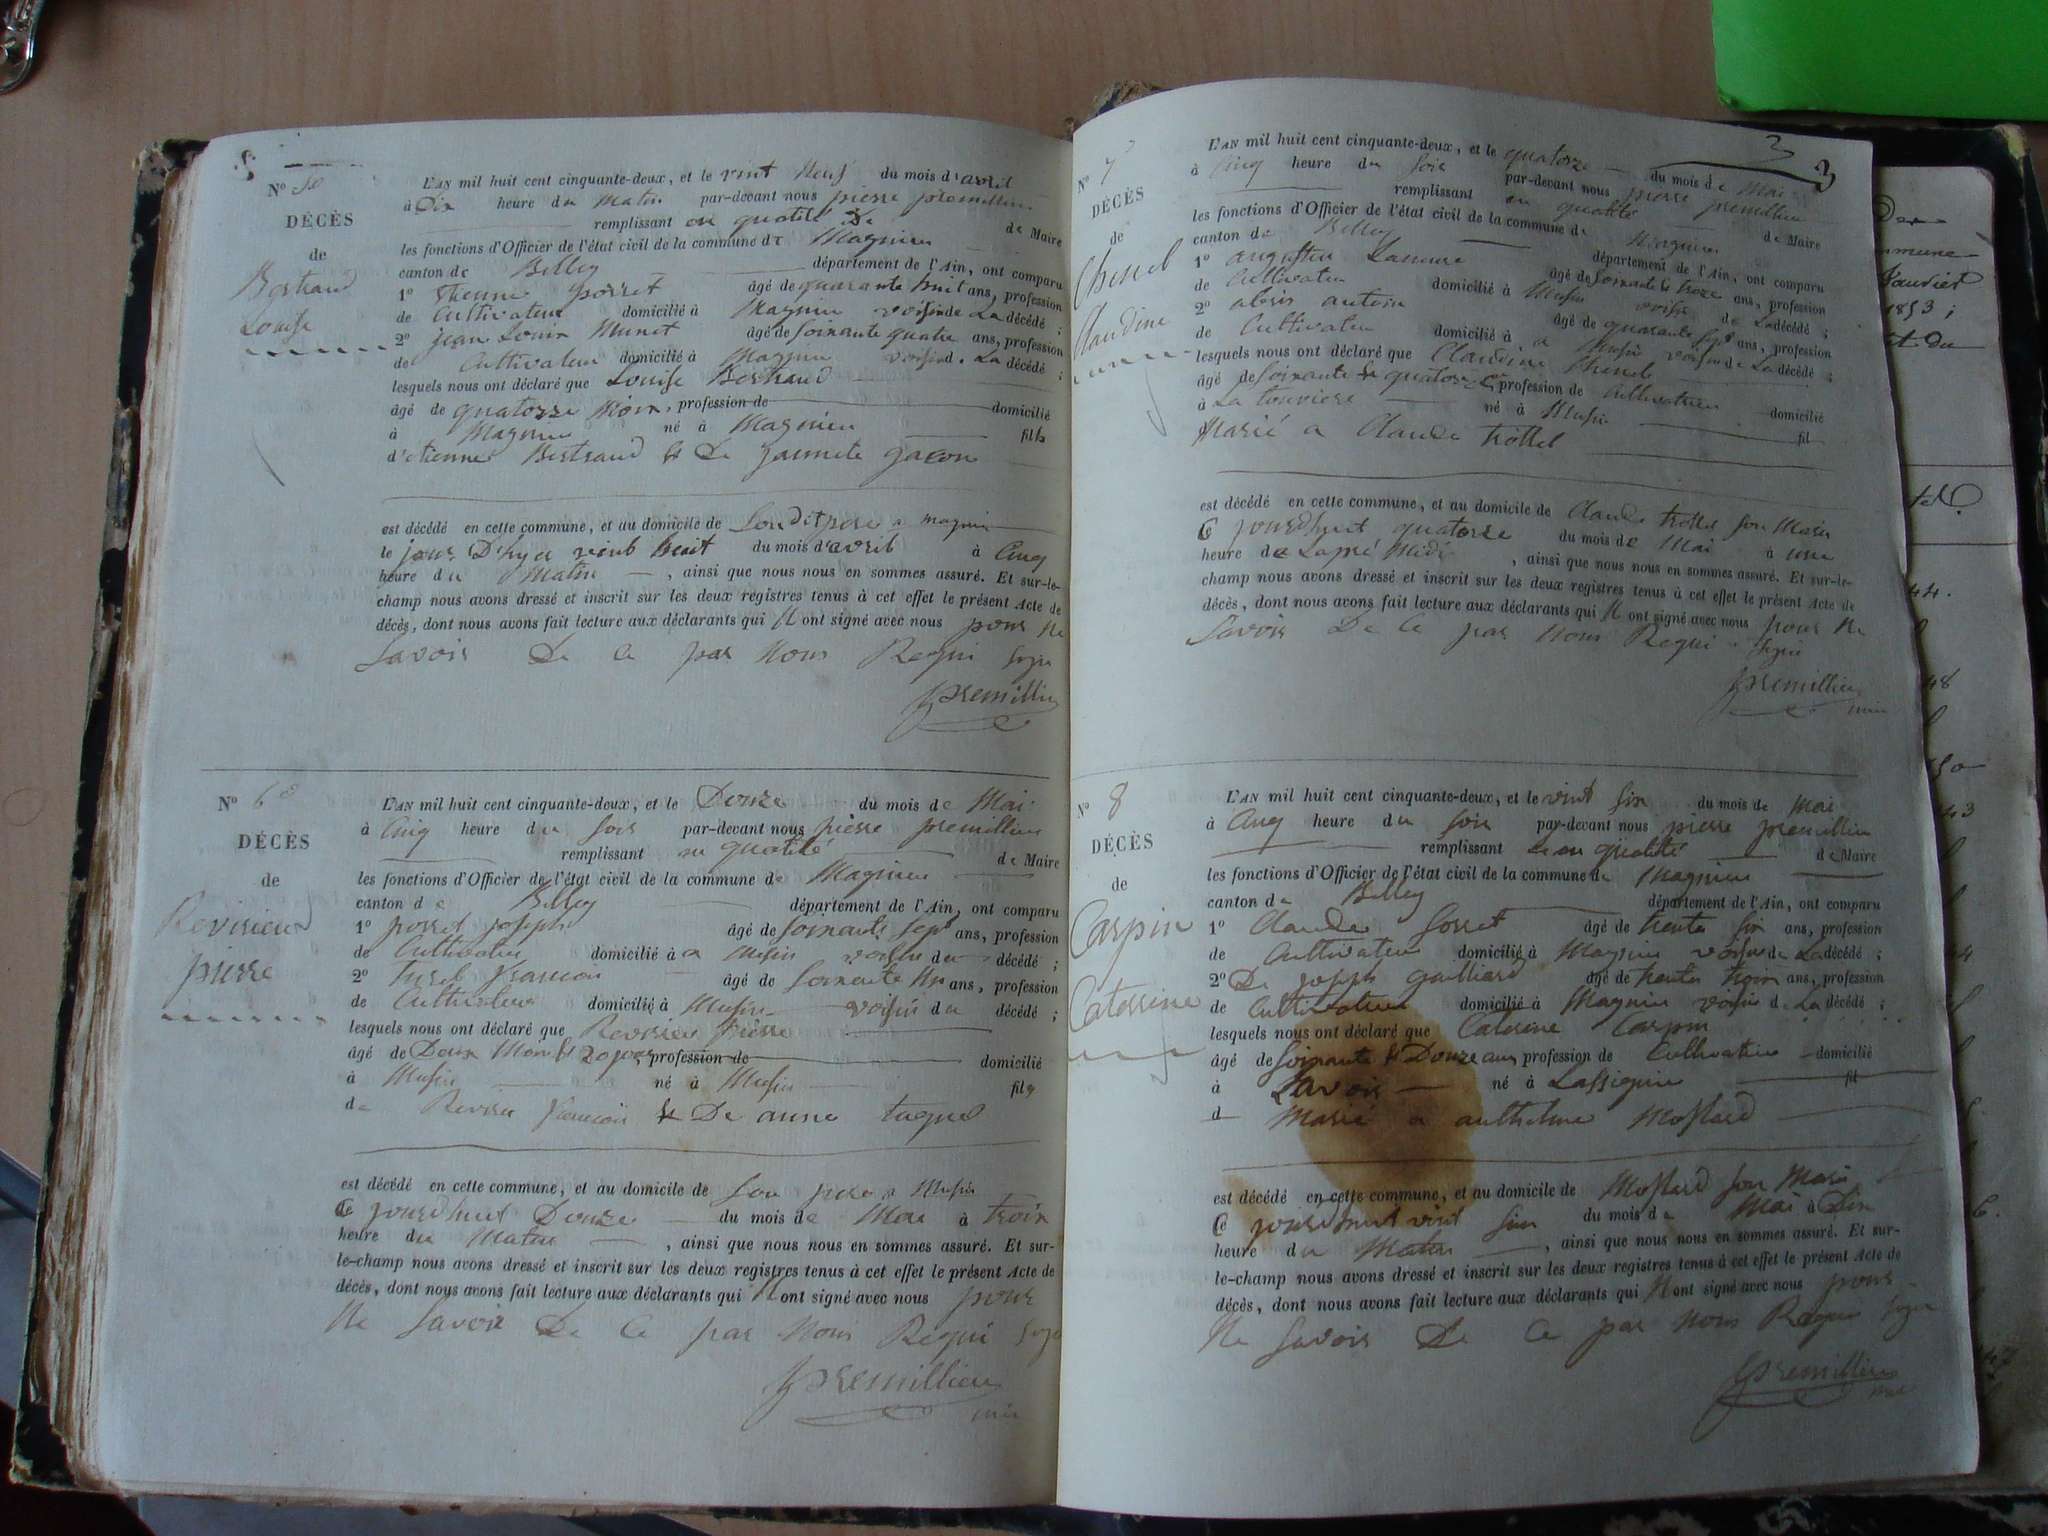 DÉCÈS
de
Bertrand
Louise
L'AN mil huit cent cinquante-deux, et le vint Neuf du mois d'avril
à Dix heure du Matin par-devant nous pierre premillieu
remplissant en qualité de Maire
les fonctions d'Officier de l'état civil de la commune de Magnieu
canton de Belley département de l'Ain, ont comparu
1° Etienne porret âgé de quarante huit ans, profession
de Cultivateur domicilié à Magnieu voisin de La décédé ;
2° jean Louis Munet âgé de soixante quatre ans, profession
de Cultivateur domicilié à Magnieu voisin d. La décédé ;
lesquels nous ont déclaré que Louise Bertrand
âgé de quatorze Mois, profession de domicilié
à Magnieu né à Magnieu fille
d'etienne Bertrand & De jannete gacon
est décédé en cette commune, et au domicile de Son dit pere a magnieu
le jour D'hyer vint huit du mois d'avril à Cinq
heure du Matin, ainsi que nous nous en sommes assuré. Et sur-le-
champ nous avons dressé et inscrit sur les deux registres tenus à cet effet le présent Acte de
décès, dont nous avons fait lecture aux déclarants qui N ont signé avec nous pour Ne
Savoir De Ce par Nous Requi
premillieu
N° 6
DÉCÈS
de
pierre
L'AN mil huit cent cinquante-deux, et le Douze du mois de Mai
à Cinq heure du Soir par-devant nous pierre premillieu
remplissant en qualité de Maire
les fonctions d'Officier de l'état civil de la commune de Magnieu
canton de Belley département de l'Ain, ont comparu
1° porret joseph âgé de soixante sept ans, profession
de Cultivateur domicilié à a Musin voisin du décédé ;
2° françois âgé de soixante ans, profession
de Cultivateur domicilié à Musin voisin du décédé ;
lesquels nous ont déclaré que pierre
âgé de Deux Mois & 20 jour, profession de domicilié
à Musin né à Musin fils
de françois & De anne
est décédé en cette commune, et au domicile de Son pere a Musin
Ce jourdhuit Douze du mois de Mai à trois
heure du Matin, ainsi que nous nous en sommes assuré. Et sur-
le-champ nous avons dressé et inscrit sur les deux registres tenus à cet effet le présent Acte de
décès, dont nous avons fait lecture aux déclarants qui N ont signé avec nous pour
Ne Savoir De Ce par Nous Requi
premillieu
3
3
N° 7
DÉCÈS
de
Claudine
L'AN mil huit cent cinquante-deux, et le quatorze du mois de Mai
à Cinq heure du Soir par-devant nous pierre premillieu
remplissant en qualité de Maire
les fonctions d'Officier de l'état civil de la commune de Magnieu
canton de Belley département de l'Ain, ont comparu
1° augustin âgé de soixante & troze ans, profession
de Cultivateur domicilié à Musin voisin de La décédé ;
2° antoine âgé de quarante sept ans, profession
de Cultivateur domicilié à a Musin voisin de La décédé ;
lesquels nous ont déclaré que Claudine
âgé de soixante & quatorze profession de Cultivateur domicilié
à La touviere né à Musin fil
Marié a Claude trottel
est décédé en cette commune, et au domicile de Claude trottel Son Mari
Ce jourdhuit quatorze du mois de Mai à une
heure de Lapré Midi, ainsi que nous nous en sommes assuré. Et sur-le-
champ nous avons dressé et inscrit sur les deux registres tenus à cet effet le présent Acte de
décès, dont nous avons fait lecture aux déclarants qui N ont signé avec nous pour Ne
Savoir De Ce par Nous Requi
premillieu
N° 8
DÉCÈS
de
Carpin
Caterine
L'AN mil huit cent cinquante-deux, et le vint six du mois de Mai
à Cinq heure du Soir par-devant nous pierre premillieu
remplissant en qualité de Maire
les fonctions d'Officier de l'état civil de la commune de Magnieu
canton de Belley département de l'Ain, ont comparu
1° Claude âgé de trente six ans, profession
de Cultivateur domicilié à Magnieu voisin de La décédé ;
2° De joseph gaillard âgé de trente trois ans, profession
de Cultivateur domicilié à Magnieu voisin d. La décédé ;
lesquels nous ont déclaré que Caterine Carpin
âgé de soixante & Douze ans, profession de Cultivateur domicilié
à Savoir né à Lassignieu fil
d Marié a anthelme Mollard
est décédé en cette commune, et au domicile de Mollard Son Mari
Ce jourdhuit vint six du mois de Mai à Dix
heure du Matin, ainsi que nous nous en sommes assuré. Et sur-
le-champ nous avons dressé et inscrit sur les deux registres tenus à cet effet le présent Acte de
décès, dont nous avons fait lecture aux déclarants qui N ont signé avec nous pour
Ne Savoir De Ce par Nous Requi
premillieu
1853 ;